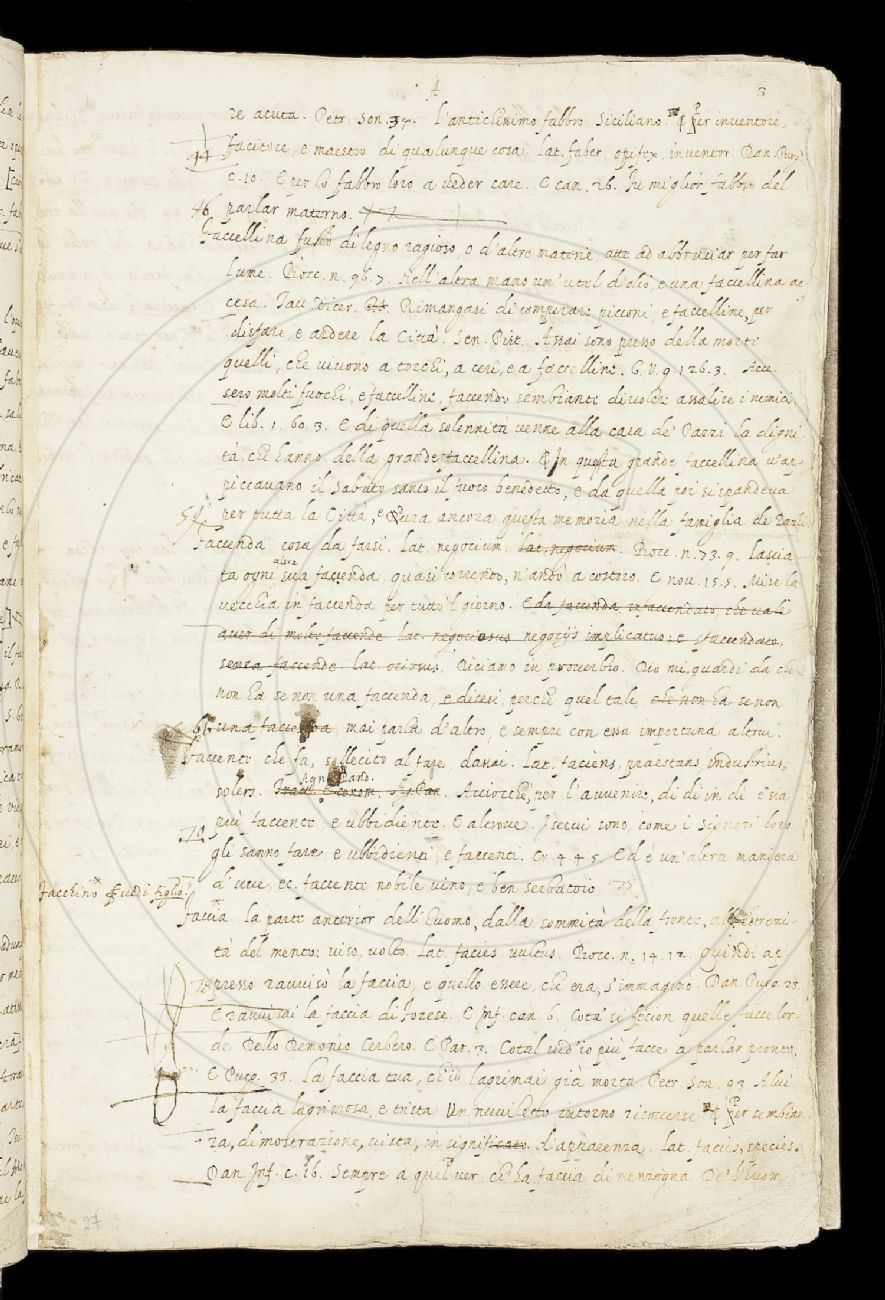 A 3
re acuta. Petr. Son. 34. l'antichissimo fabbro Siciliano. ¶ Per inventore,
44 facitore, e maestro di qualunque cosa Lat. faber, opifex, inventor. Dan. Purg.
C. 10. E per lo fabbro loro a veder care. E can. 26. Fu miglior fabbro del
46 parlar materno.
Faccellina fusto di legno ragioso, o d'altre materie, atte ad abbruciar per far
lume. Bocc. n. 96. 7. Nell'altra mano un' utel d'olio, e una faccellina ac
cesa. Tav. Dicer. Rimangasi di comperare picconi, e faccelline, per
disfare, e ardere la Città. Sen. Pist. Assai sono presso della morte
quelli, che vivono a torchi, a ceri, e a faccelline. G. V. 9. 126. 3. Acce
sero molti fuochi, e faccelline, faccendo sembiante di volere assalire i nemici
E lib. 1. 60. 3. E di quella solennità venne alla casa de' Pazzi la digni
tà, che hanno della grande faccellina. In questa grande faccellina v'ap
piccavano il Sabato santo il fuoco benedetto, e da quella poi si spandeva
per tutta la Città, e dura ancora questa memoria nella famiglia de Pazzi
Faccenda cosa da farsi. Lat. negocium. lat. negocium. Bocc. n. 73. 9. lascia
ta ogni altra sua faccenda, quasi correndo, n'andò a costoro. E nov. 15. 5. Mise la
vecchia in faccenda per tutto 'l giorno. E da faccenda, infaccendato, che vale
aver di molte faccende lat. negociosus negocijs implicatus: e sfaccendato,
senza faccende. lat. ociosus. Diciamo in proverbio. Dio mi guardi da chi
non ha se non una faccenda, e dicesi, perchè quel tale, che non ha se non
una faccenda, mai parla d'altro, e sempre con essa importuna altrui.
Faccente che fa, sollecito al fare, dassai. Lat. faciens, praestans industrius,
solers. Agn. Pand. Acciocchè, per l'avvenire, di dì in dì e' sia
70 più faccente e ubbidiente. E altrove. I servi sono, come i Signori loro
gli sanno fare, e ubbidienti, e faccenti. Cr. 4. 4. 5. Ed è un'altra maniera
d'uve, ec. faccente nobile vino, e ben serbatoio 75
Facchino vedi figlio
Faccia la parte anterior dell'huomo, dalla sommità della fronte, all'estremi
tà del mento: viso, volto. Lat. facies vultus. Bocc. n. 14. 12. Quindi ap
78 presso ravvisò la faccia, e quello essere, che era, s'immaginò. Dan. Purg. 23.
E ravvisai la faccia di Forese. E Inf. can. 6. Cota' si fecion quelle facce lor
de Dello Demonio Cerbero. E Par. 3. Cotal vid'io più facce a parlar pronte,
E Purg. 33. La faccia tua, ch'io lagrimai già morta Petr. Son. 93. A lui
la faccia lagrimosa, e trista Un nuviletto intorno ricoverse ¶ Per sembian
za, dimostrazione, vista, in significato d'apparenza. Lat. facies, species.
Dan. Inf. c. 16. Sempre a quel ver, ch'ha faccia di menzogna De' l'huom
27